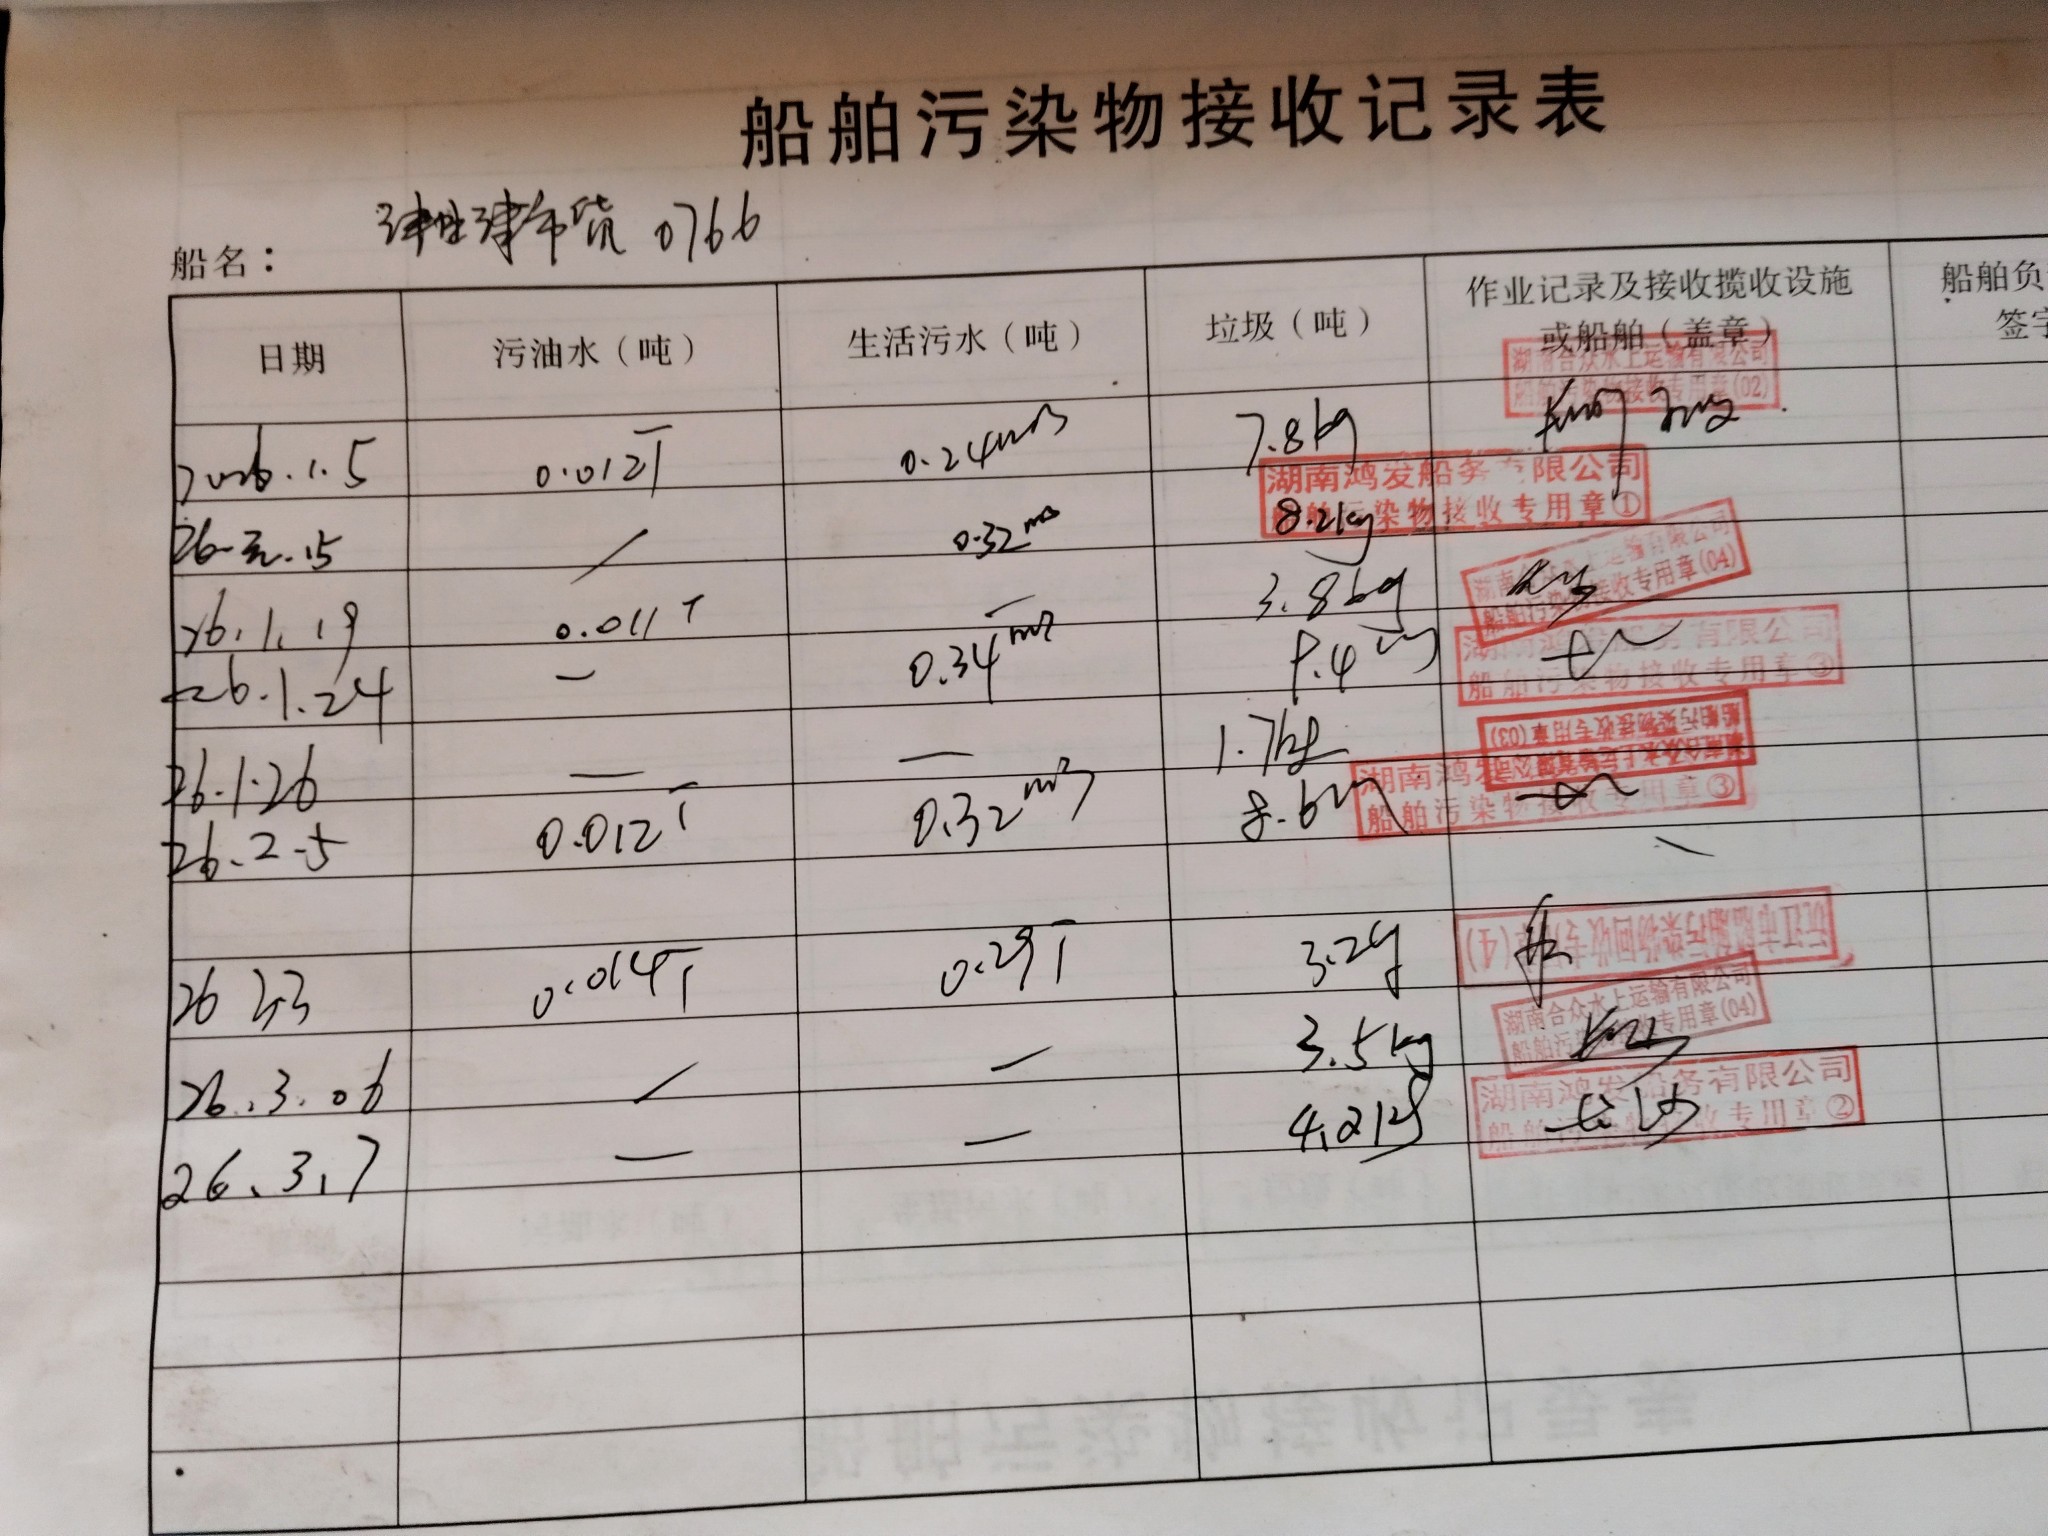 船舶污染物接收记录表
船名： 津市货 0766
日期 污油水（吨） 生活污水（吨） 垃圾（吨） 作业记录及接收揽收设施或船舶（盖章） 船舶负 签字
湖南合众水上运输有限公司
船舶污染物接收专用章(02)
2026.1.5 0.012T 0.24m³ 7.8kg
湖南鸿发船务有限公司
船舶污染物接收专用章①
26.元.15 / 0.32m³ 8.2kg
湖南合众水上运输有限公司
船舶污染物接收专用章(04)
26.1.19 0.011T — 3.8kg
湖南鸿发船务有限公司
船舶污染物接收专用章③
26.1.24 — 0.34m³ 9.4
船舶污染物接收专用章(03)
湖南合众水上运输有限公司
26.1.26 — — 1.7kg
湖南鸿发
船舶污染物接收专用章③
26.2.5 0.012T 0.32m³ 8.6
沅江市船舶污染物回收专用章(4)
26 3.3 0.014T 0.29T 3.2
湖南合众水上运输有限公司
船舶污染物接收专用章(04)
26.3.06 / — 3.5kg
湖南鸿发船务有限公司
船舶污染物接收专用章②
26.3.7 — — 4.2kg 长沙